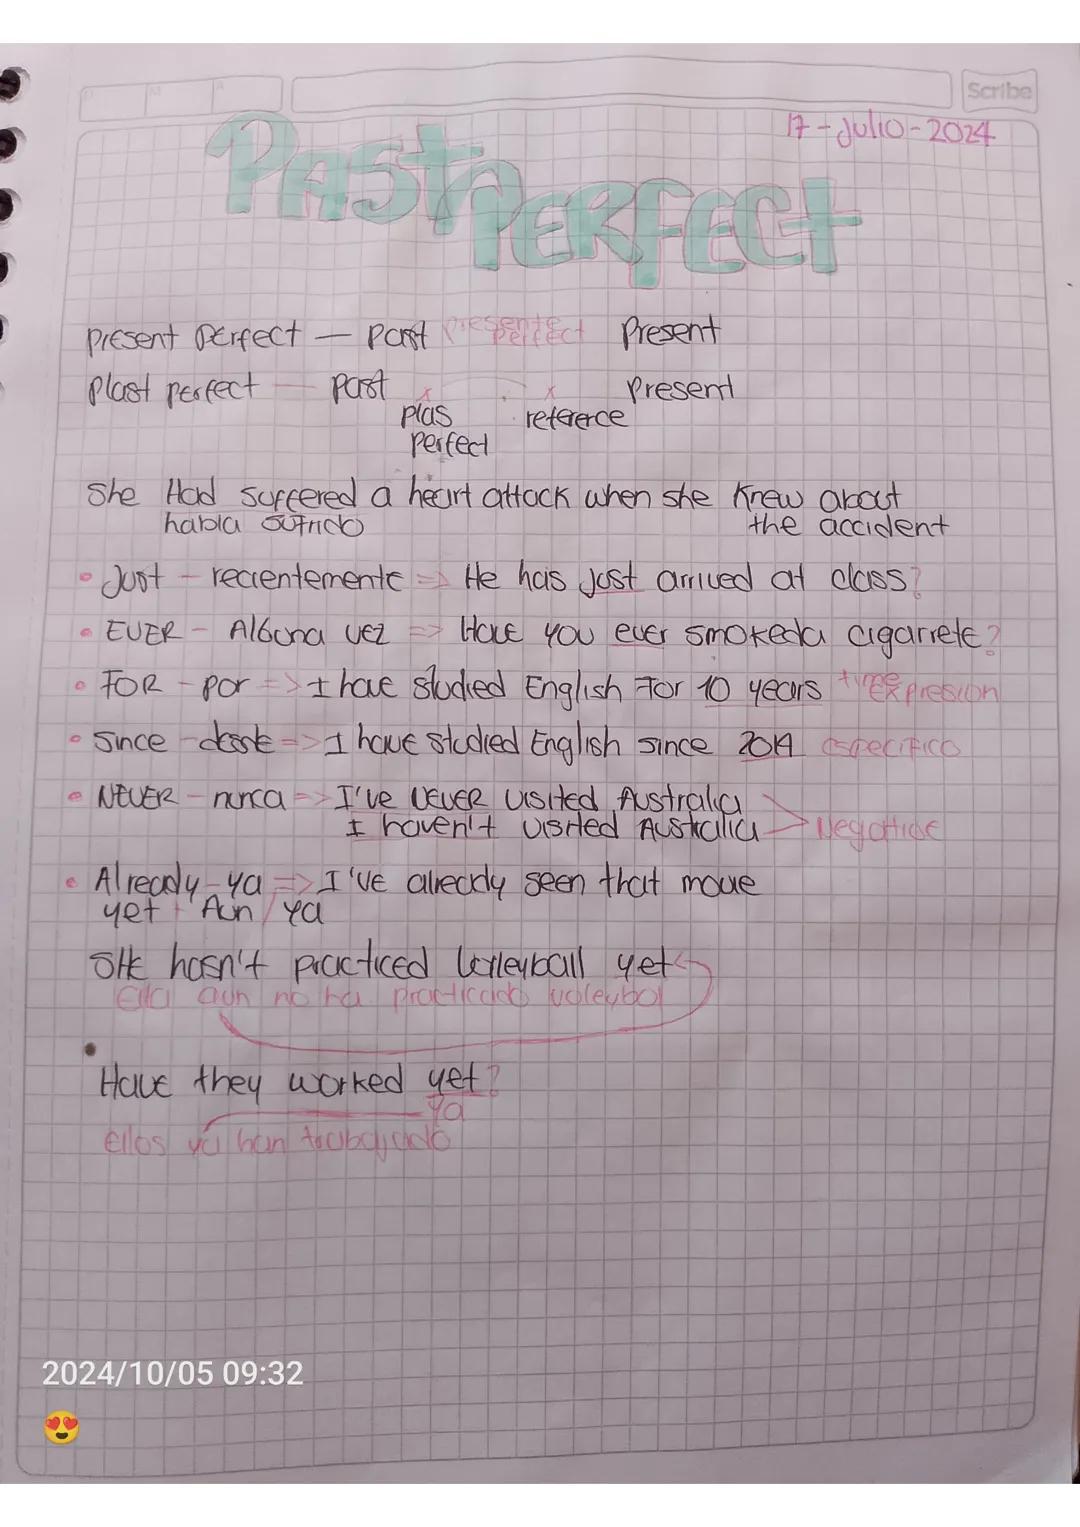 Scribe
17-Julio-2024
PAST PERFECT
Present Perfect — past presente perfect Present
Plast perfect — past x x Present
plas reference
perfect
She Had suffered a heart attack when she Knew about
habia sufrido the accident
• Just - recientemente => He has just arrived at class?
• EVER - Alguna vez => Have you ever smoked a cigarrete?
• FOR - por => I have studied English For 10 years time expresion
• Since - desde => I have studied English since 2014 especifico
• NEVER - nunca => I've NEVER visited Australia
I haven't visited Australia > Negative
• Already - ya => I'VE already seen that movie
yet + Aun / ya
SHE hasn't practiced voleyball yet
Ella aun no ha practicado voleybol
•
Have they worked yet?
ya
Ellos ya han trabajado
2024/10/05 09:32
😍